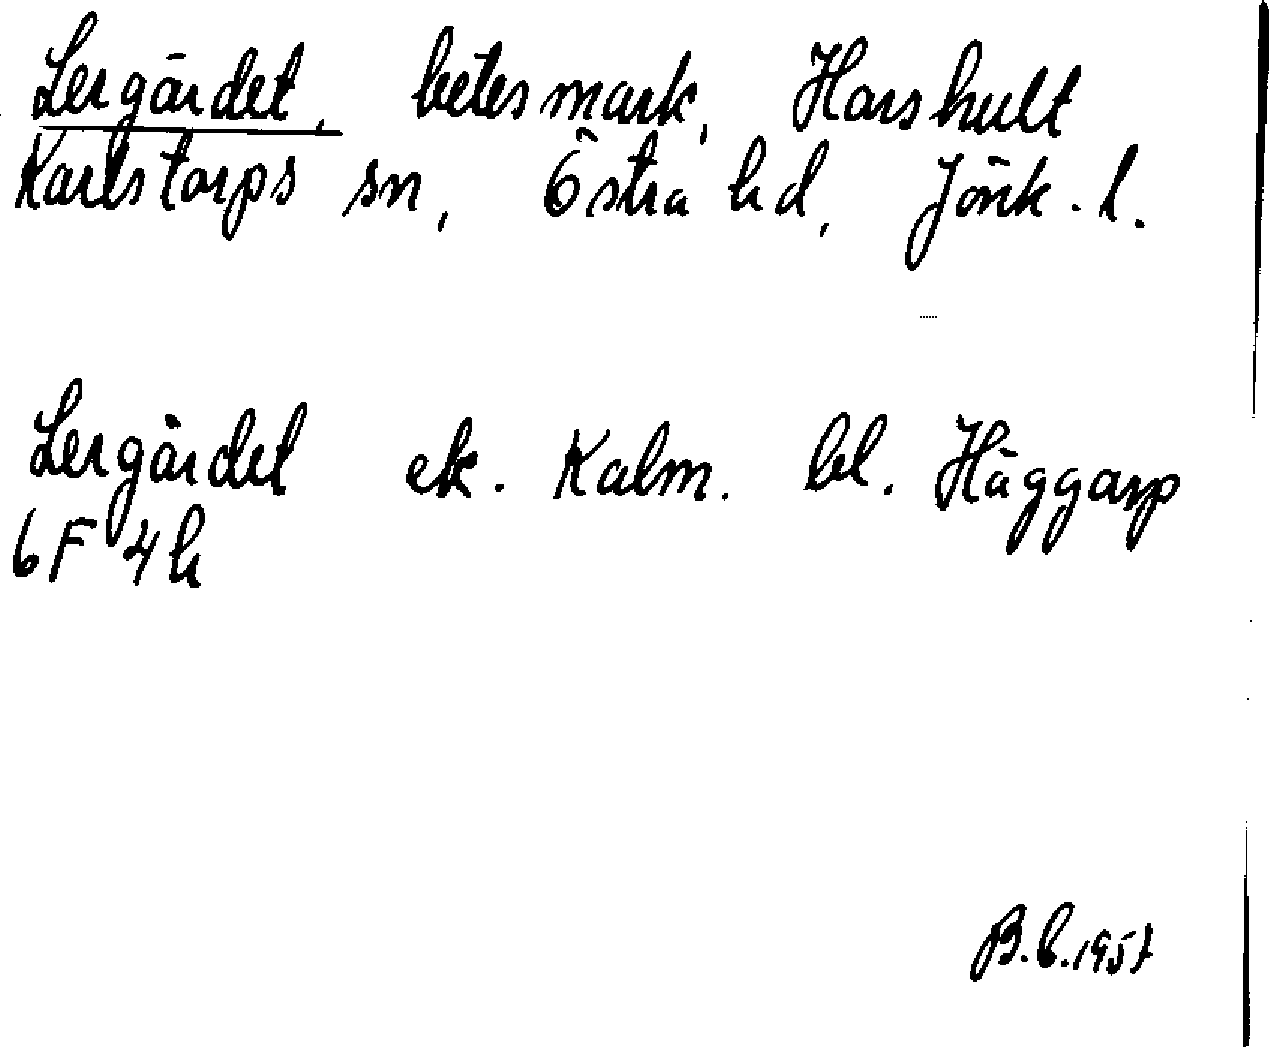 Lergärdet, betesmark, Harshult
Karlstorps sn, Östra hd, Jönk. l.
Lergärdet ek. Kalm. bl. Häggarp
6F 4h
B.C.1957